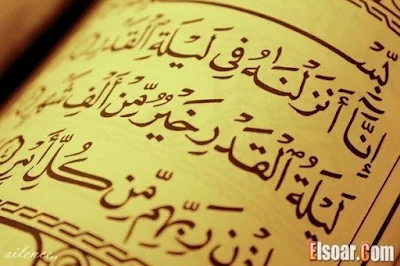 بِسْ
إِنَّا أَنزَلْنَٰهُ فِي لَيْلَةِ ٱلْقَدْرِ
لَيْلَةُ ٱلْقَدْرِ خَيْرٌ مِّنْ أَلْفِ شَهْرٍ
رَبِّهِم مِّن كُلِّ أَمْرٍ
Elsoar.Com